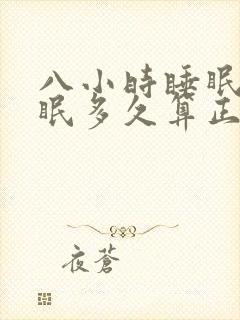 八小時睡眠
眠多久算正
夜蒼